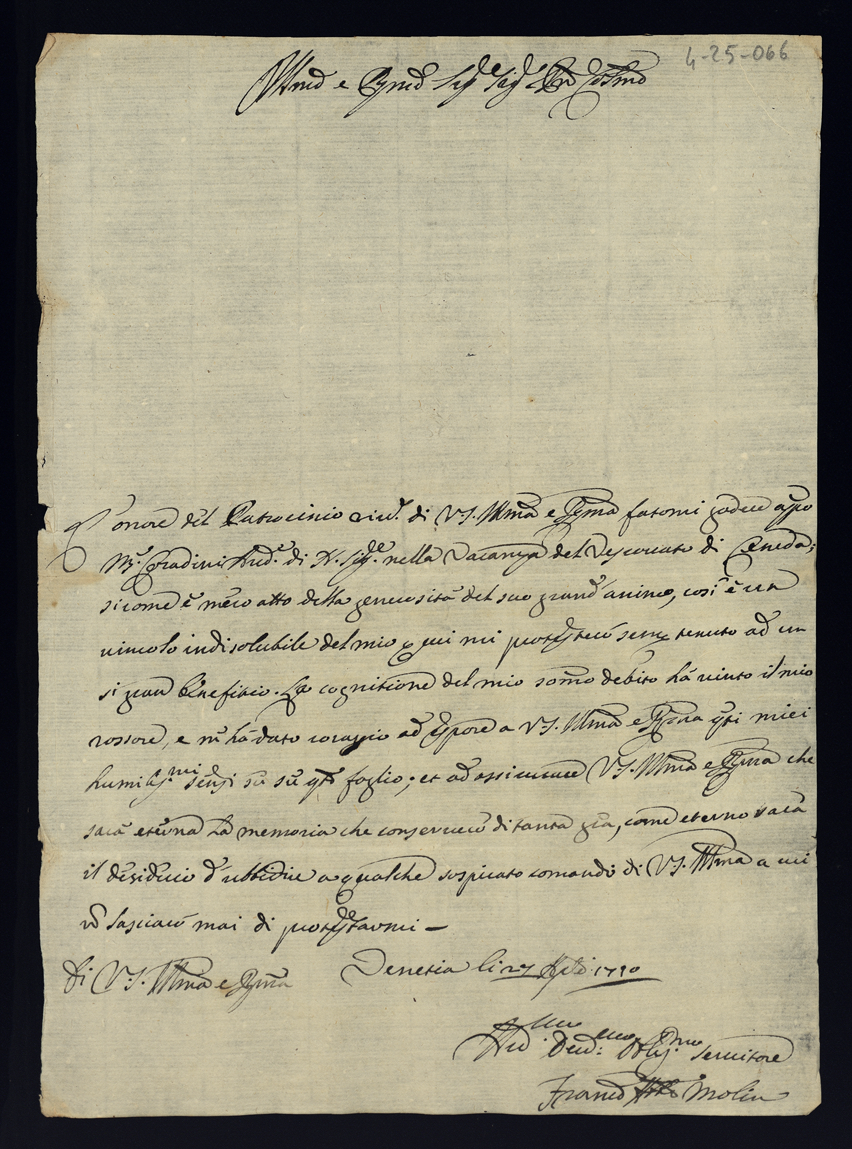 4-25-066
Illmo e Rmo Sig.r Sig.r Pron Colmo
L'onore del Patrocinio di V.S. Illma e Rma fatomi godere appo
M.r Coradini Aud.e di N. Sig.re nella Vacanza del Vescovato di Ceneda;
sicome è mero atto della generosità del suo grand'animo, così è un
vincolo indisolubile del mio per cui mi protesterò sempre tenuto ad un
sì gran benefizio. La cognitione del mio somo debito hà vinto il mio
rossore, e m'hà dato coraggio ad espore a V.S. Illma e Rma qsti miei
humiliss.mi sensi sù qsto foglio; et ad assicurare V.S. Illma e Rma che
sarà eterna la memoria che conserverò di tanta gra, come eterno sarà
il desiderio d'ubbidire a qualche sospirato comando di V.S. Illma a cui
nō lasciarò mai di protestarmi –
Di V.S. Illma e Rma Venetia li 27 1710
Hu.mo Dev.mo Obl.mo Servitore
Franco Molin